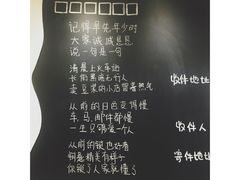 记得早先年少时
大家诚诚恳恳
说一句是一句
清晨上火车站
长街黑暗无行人
卖豆浆的小店冒着热气
从前的日色变得慢
车、马、邮件都慢
一生只够爱一个人
从前的锁也好看
钥匙精美有样子
你锁了人家就懂了
收件地址
收件人
寄件地址